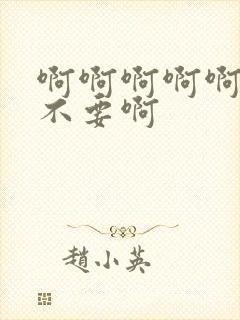 啊啊啊啊啊
不要啊
趙小英